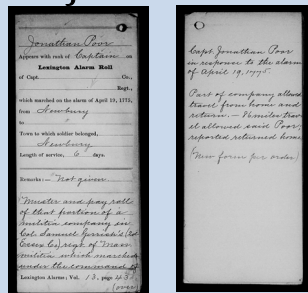 Jonathan Poor
Appears with rank of Captain on
Lexington Alarm Roll
of Capt. Co.,
Regt.,
which marched on the alarm of April 19, 1775,
from Newbury
to
Town to which soldier belonged,
Newbury
Length of service, 6 days.
Remarks:— Not given
Muster and pay roll
of that portion of a
militia company in
Col. Samuel Gerrish's (2d
Essex Co.) regt. of Mass.
militia which marched
under the command of
Lexington Alarms; Vol. 13, page 43.
(over)
Capt. Jonathan Poor
in response to the alarm
of April 19, 1775.
Part of company allowed
travel from home and
return. — 86 miles trav
el allowed said Poor;
reported returned home
(New form per order)